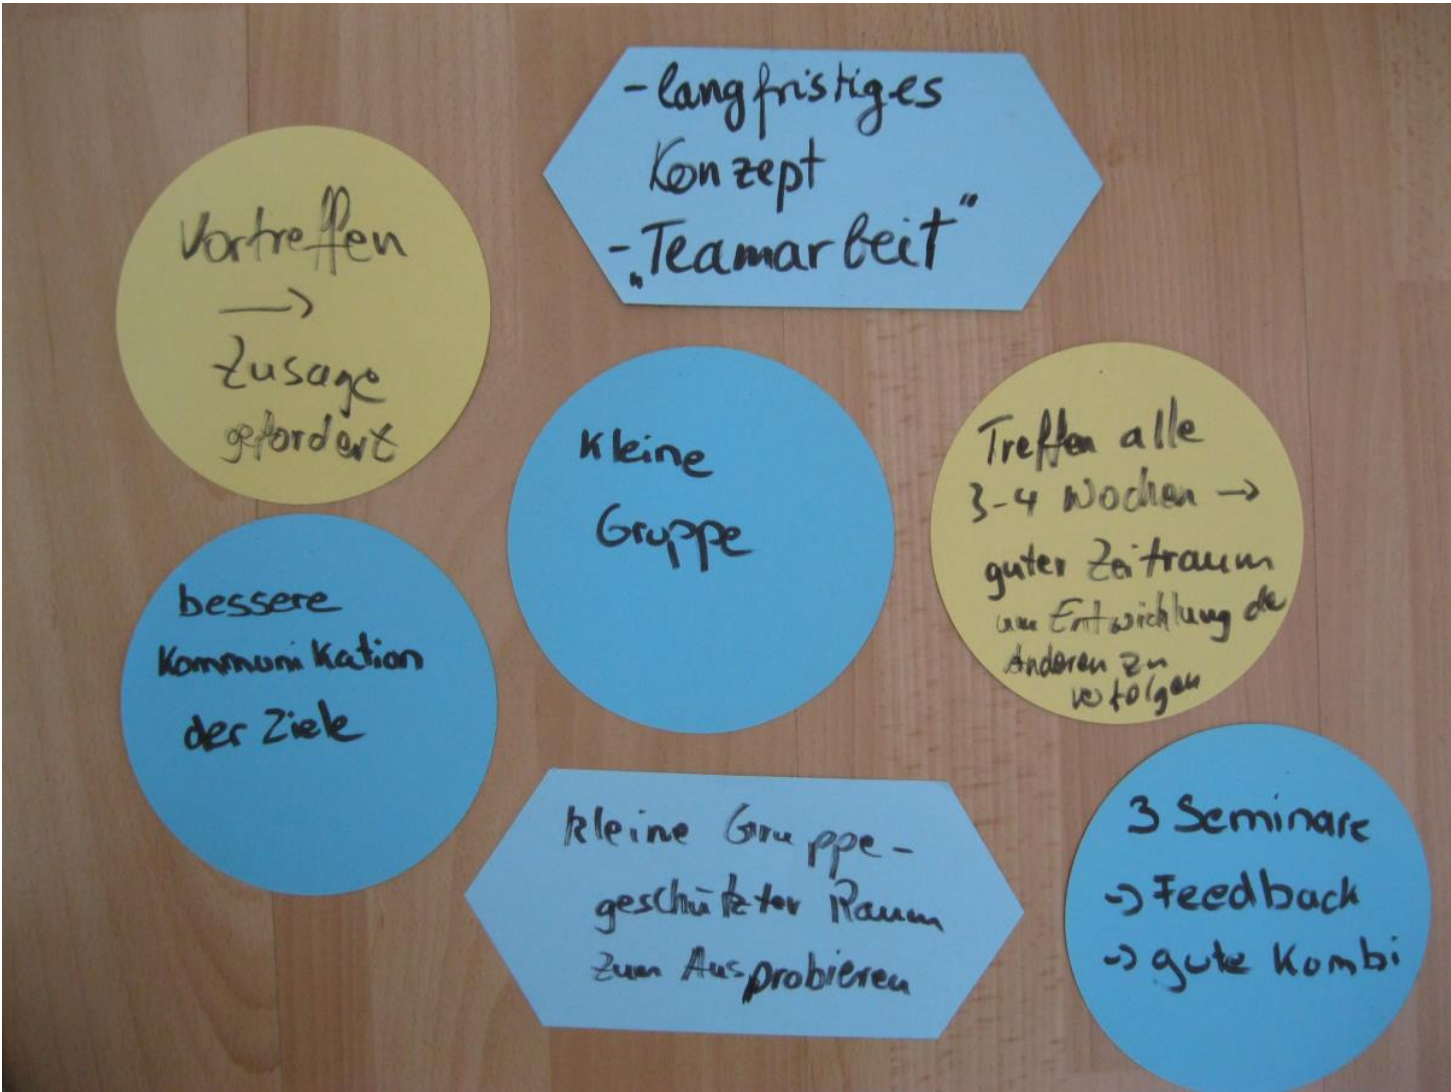 - langfristiges
Konzept
- „Teamarbeit“
Vortreffen
→
Zusage
gefordert
kleine
Gruppe
Treffen alle
3-4 Wochen →
guter Zeitraum
um Entwicklung der
Anderen zu
verfolgen
bessere
Kommunikation
der Ziele
kleine Gruppe -
geschützter Raum
zum Ausprobieren
3 Seminare
→ Feedback
→ gute Kombi